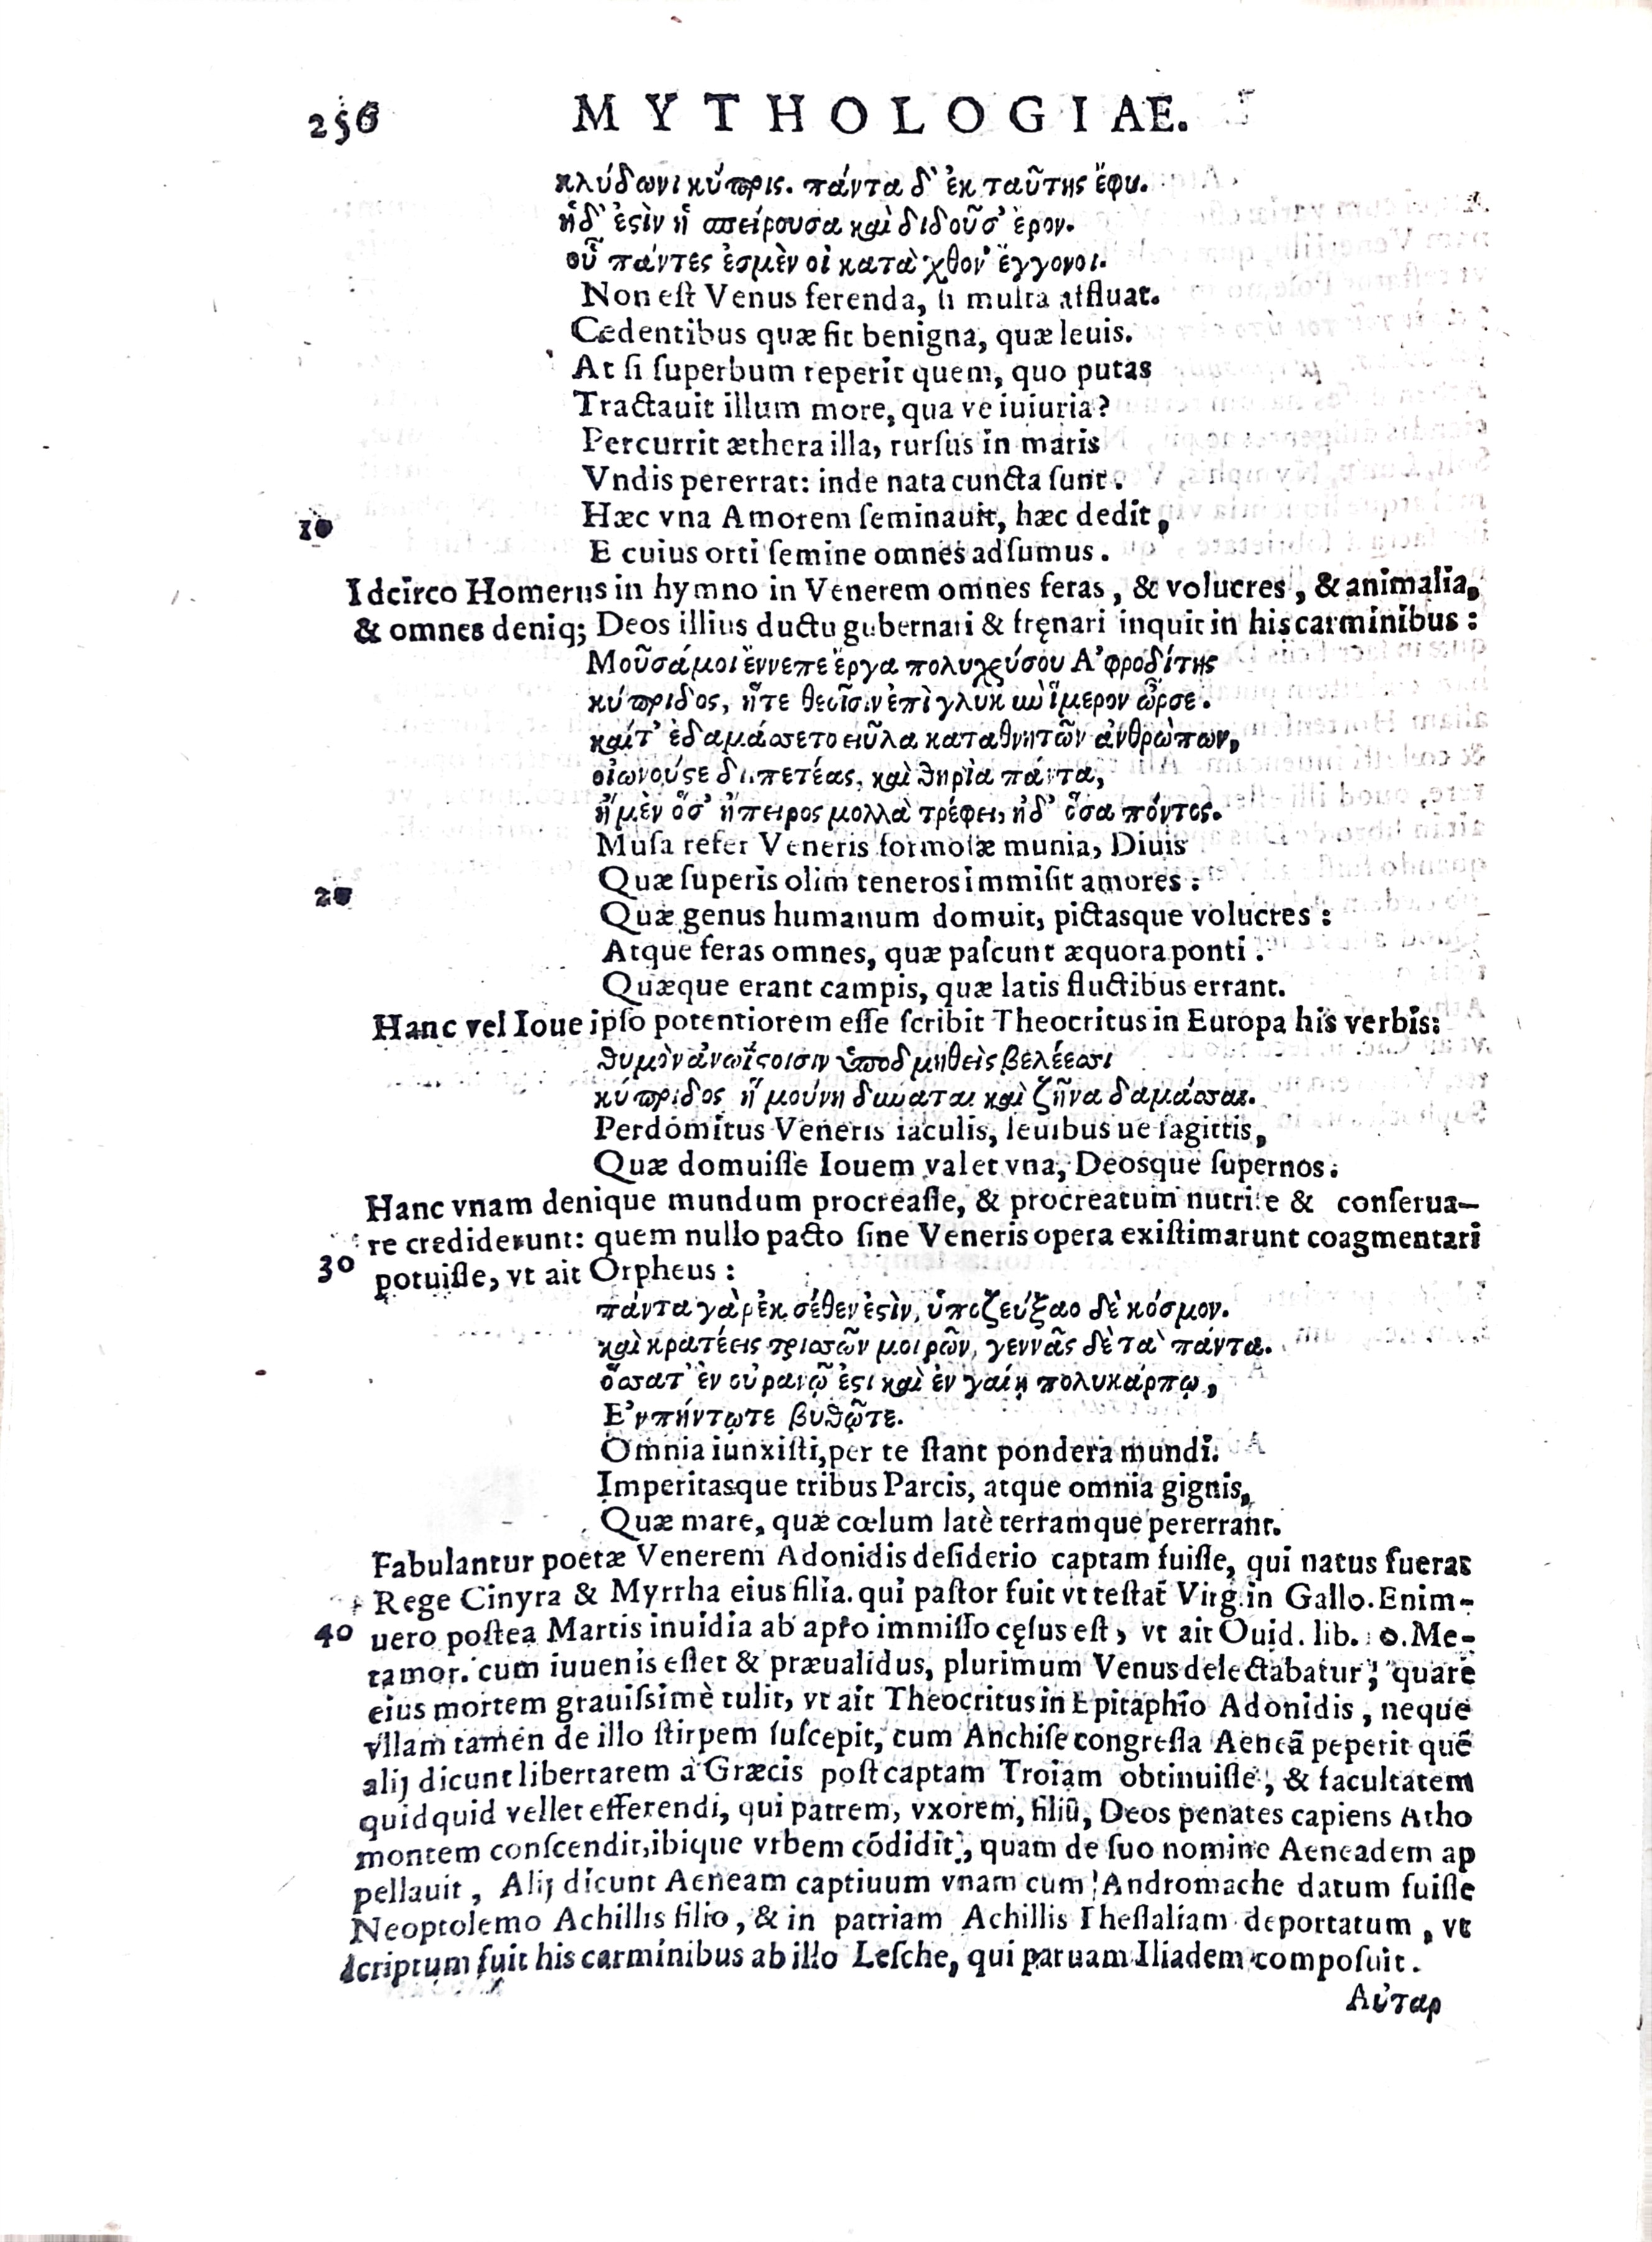 256 MYTHOLOGIAE.
κλύδωνι κύπρις. πάντα δ' ἐκ ταῦτης ἔφυ.
ἥδ' ἐστὶν ἡ σπείρουσα καὶ διδοῦσ' ἔρον.
οὗ πάντες ἐσμὲν οἱ κατὰ χθον' ἔγγονοι.
Non est Venus ferenda, si multa affluat.
Cedentibus quæ fit benigna, quæ leuis.
At si superbum reperit quem, quo putas
Tractauit illum more, qua ve iuiuria?
Percurrit æthera illa, rursus in maris
Vndis pererrat: inde nata cuncta sunt.
10 Hæc vna Amorem seminauit, hæc dedit,
E cuius orti semine omnes adsumus.
Idcirco Homerus in hymno in Venerem omnes feras, & volucres, & animalia,
& omnes deniq; Deos illius ductu gubernari & fręnari inquit in his carminibus:
Μοῦσά μοι ἔννεπε ἔργα πολυχρύσου Α'φροδίτης
κύπριδος, ἥτε θεοῖσιν ἐπὶ γλυκὺν ἵμερον ὦρσε.
καίτ' ἐδαμάσσετο φῦλα καταθνητῶν ἀνθρώπων,
οἰωνούστε διιπετέας, καὶ θηρία πάντα,
ἠμὲν ὅσ' ἤπειρος μολλὰ τρέφει, ἠδ' ὅσα πόντος.
Musa refer Veneris formosæ munia, Diuis
20 Quæ superis olim teneros immisit amores:
Quæ genus humanum domuit, pictasque volucres:
Atque feras omnes, quæ pascunt æquora ponti.
Quæque erant campis, quæ latis fluctibus errant.
Hanc vel Ioue ipso potentiorem esse scribit Theocritus in Europa his verbis:
θυμὸν ἀνωΐστοισιν ὑποδμηθεὶς βελέεσσι
κύπριδος ἣ μούνη δύναται καὶ ζῆνα δαμάσσαι.
Perdomitus Veneris iaculis, leuibus ue sagittis,
Quæ domuisse Iouem valet vna, Deosque supernos.
Hanc vnam denique mundum procreasse, & procreatum nutrire & conserua-
re crediderunt: quem nullo pacto sine Veneris opera existimarunt coagmentari
30 potuisse, vt ait Orpheus:
πάντα γὰρ ἐκ σέθεν ἐστὶν, ὑποζεύξαο δὲ κόσμον.
καὶ κρατέεις τρισσῶν μοιρῶν, γεννᾶς δὲ τὰ πάντα.
ὅσσατ' ἐν οὐρανῷ ἐστι καὶ ἐν γαίῃ πολυκάρπῳ,
Ε'νπήντῳτε βυθῷτε.
Omnia iunxisti, per te stant pondera mundi.
Imperitasque tribus Parcis, atque omnia gignis,
Quæ mare, quæ cœlum latè terramque pererrant.
Fabulantur poetæ Venerem Adonidis desiderio captam fuisse, qui natus fueras
Rege Cinyra & Myrrha eius filia. qui pastor fuit vt testat Virg. in Gallo. Enim-
40 uero postea Martis inuidia ab apro immisso cęsus est, vt ait Ouid. lib. 10. Me-
tamor. cum iuuenis esset & præualidus, plurimum Venus delectabatur; quare
eius mortem grauissimè tulit, vt ait Theocritus in Epitaphio Adonidis, neque
vllam tamen de illo stirpem suscepit, cum Anchise congressa Aeneā peperit quē
alij dicunt libertatem à Græcis post captam Troiam obtinuisse, & facultatem
quidquid vellet efferendi, qui patrem, vxorem, filiū, Deos penates capiens Atho
montem conscendit, ibique vrbem cōdidit, quam de suo nomine Aeneadem ap
pellauit, Alij dicunt Aeneam captiuum vnam cum Andromache datum fuisse
Neoptolemo Achillis filio, & in patriam Achillis Thessaliam deportatum, vt
scriptum fuit his carminibus ab illo Lesche, qui paruam Iliadem composuit.
Αὐταρ